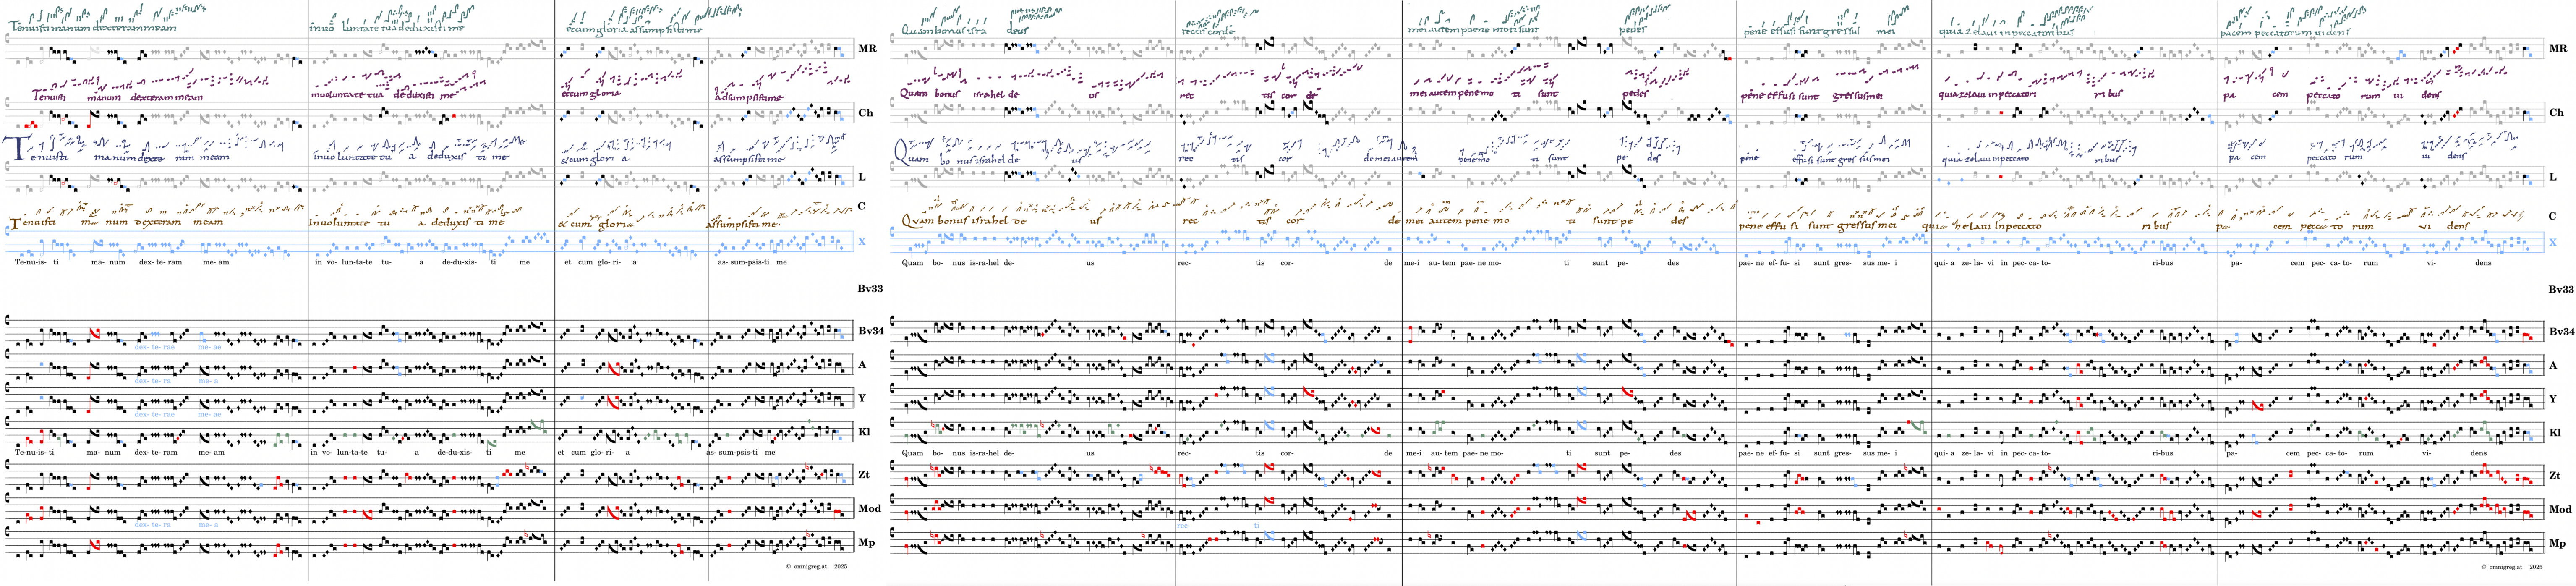 Tenuisti manum dexteram meam inuoluntate tua deduxisti me etcum gloria assumpsisti me
MR
Tenuisti manum dexteram meam inuoluntate tua deduxisti me etcum gloria adsumpsisti me
Ch
Tenuisti manum dexteram meam inuoluntate tu a deduxis ti me &cum glori a assumpsisti me
L
Tenuisti ma num dexteram meam Inuoluntate tu a deduxis ti me & cum gloria assumpsisti me
C
X
Te-nu-is- ti ma- num dex- te- ram me- am in vo- lun-ta-te tu- a de-du-xis- ti me et cum glo- ri- a as- sum-psis-ti me
Bv33
Bv34
dex- te- rae me- ae
A
dex- te- ra me- a
Y
dex- te- rae me- ae
Kl
Te-nu-is- ti ma- num dex- te- ram me- am in vo- lun-ta-te tu- a de-du-xis- ti me et cum glo- ri- a as- sum-psis-ti me
Zt
Mod
dex- te- ra me- a
Mp
© omnigreg.at 2025
Quam bonus isra deus rectis corde mei autem paene moti sunt pedes pene effusi sunt gressus mei quia zelaui in peccatoribus pacem peccatorum uidens
MR
Quam bonus israhel de us rec tis cor de mei autem pene mo ti sunt pedes pene effusi sunt gressus mei quia zelaui inpeccatori ribus pa cem peccato rum ui dens
Ch
Quam bo nus israhel de us rec tis cor de mei autem pene mo ti sunt pe des pene effusi sunt gres sus mei quia zelaui inpeccato ribus pa cem peccato rum ui dens
L
Quam bonus israhel de us rec tis cor de mei autem pene mo ti sunt pe des pene effu si sunt gressus mei quia helaui inpeccato ribus pa cem pecca to rum vi dens
C
X
Quam bo- nus is-ra-hel de- us rec- tis cor- de me-i au- tem pae- ne mo- ti sunt pe- des pae- ne ef- fu- si sunt gres- sus me- i qui- a ze- la- vi in pec- ca- to- ri-bus pa- cem pec- ca- to- rum vi- dens
Bv33
Bv34
A
Y
Kl
Quam bo- nus is-ra-hel de- us rec- tis cor- de me-i au- tem pae- ne mo- ti sunt pe- des pae- ne ef- fu- si sunt gres- sus me- i qui- a ze- la- vi in pec- ca- to- ri-bus pa- cem pec- ca- to- rum vi- dens
Zt
Mod
rec- ti
Mp
© omnigreg.at 2025